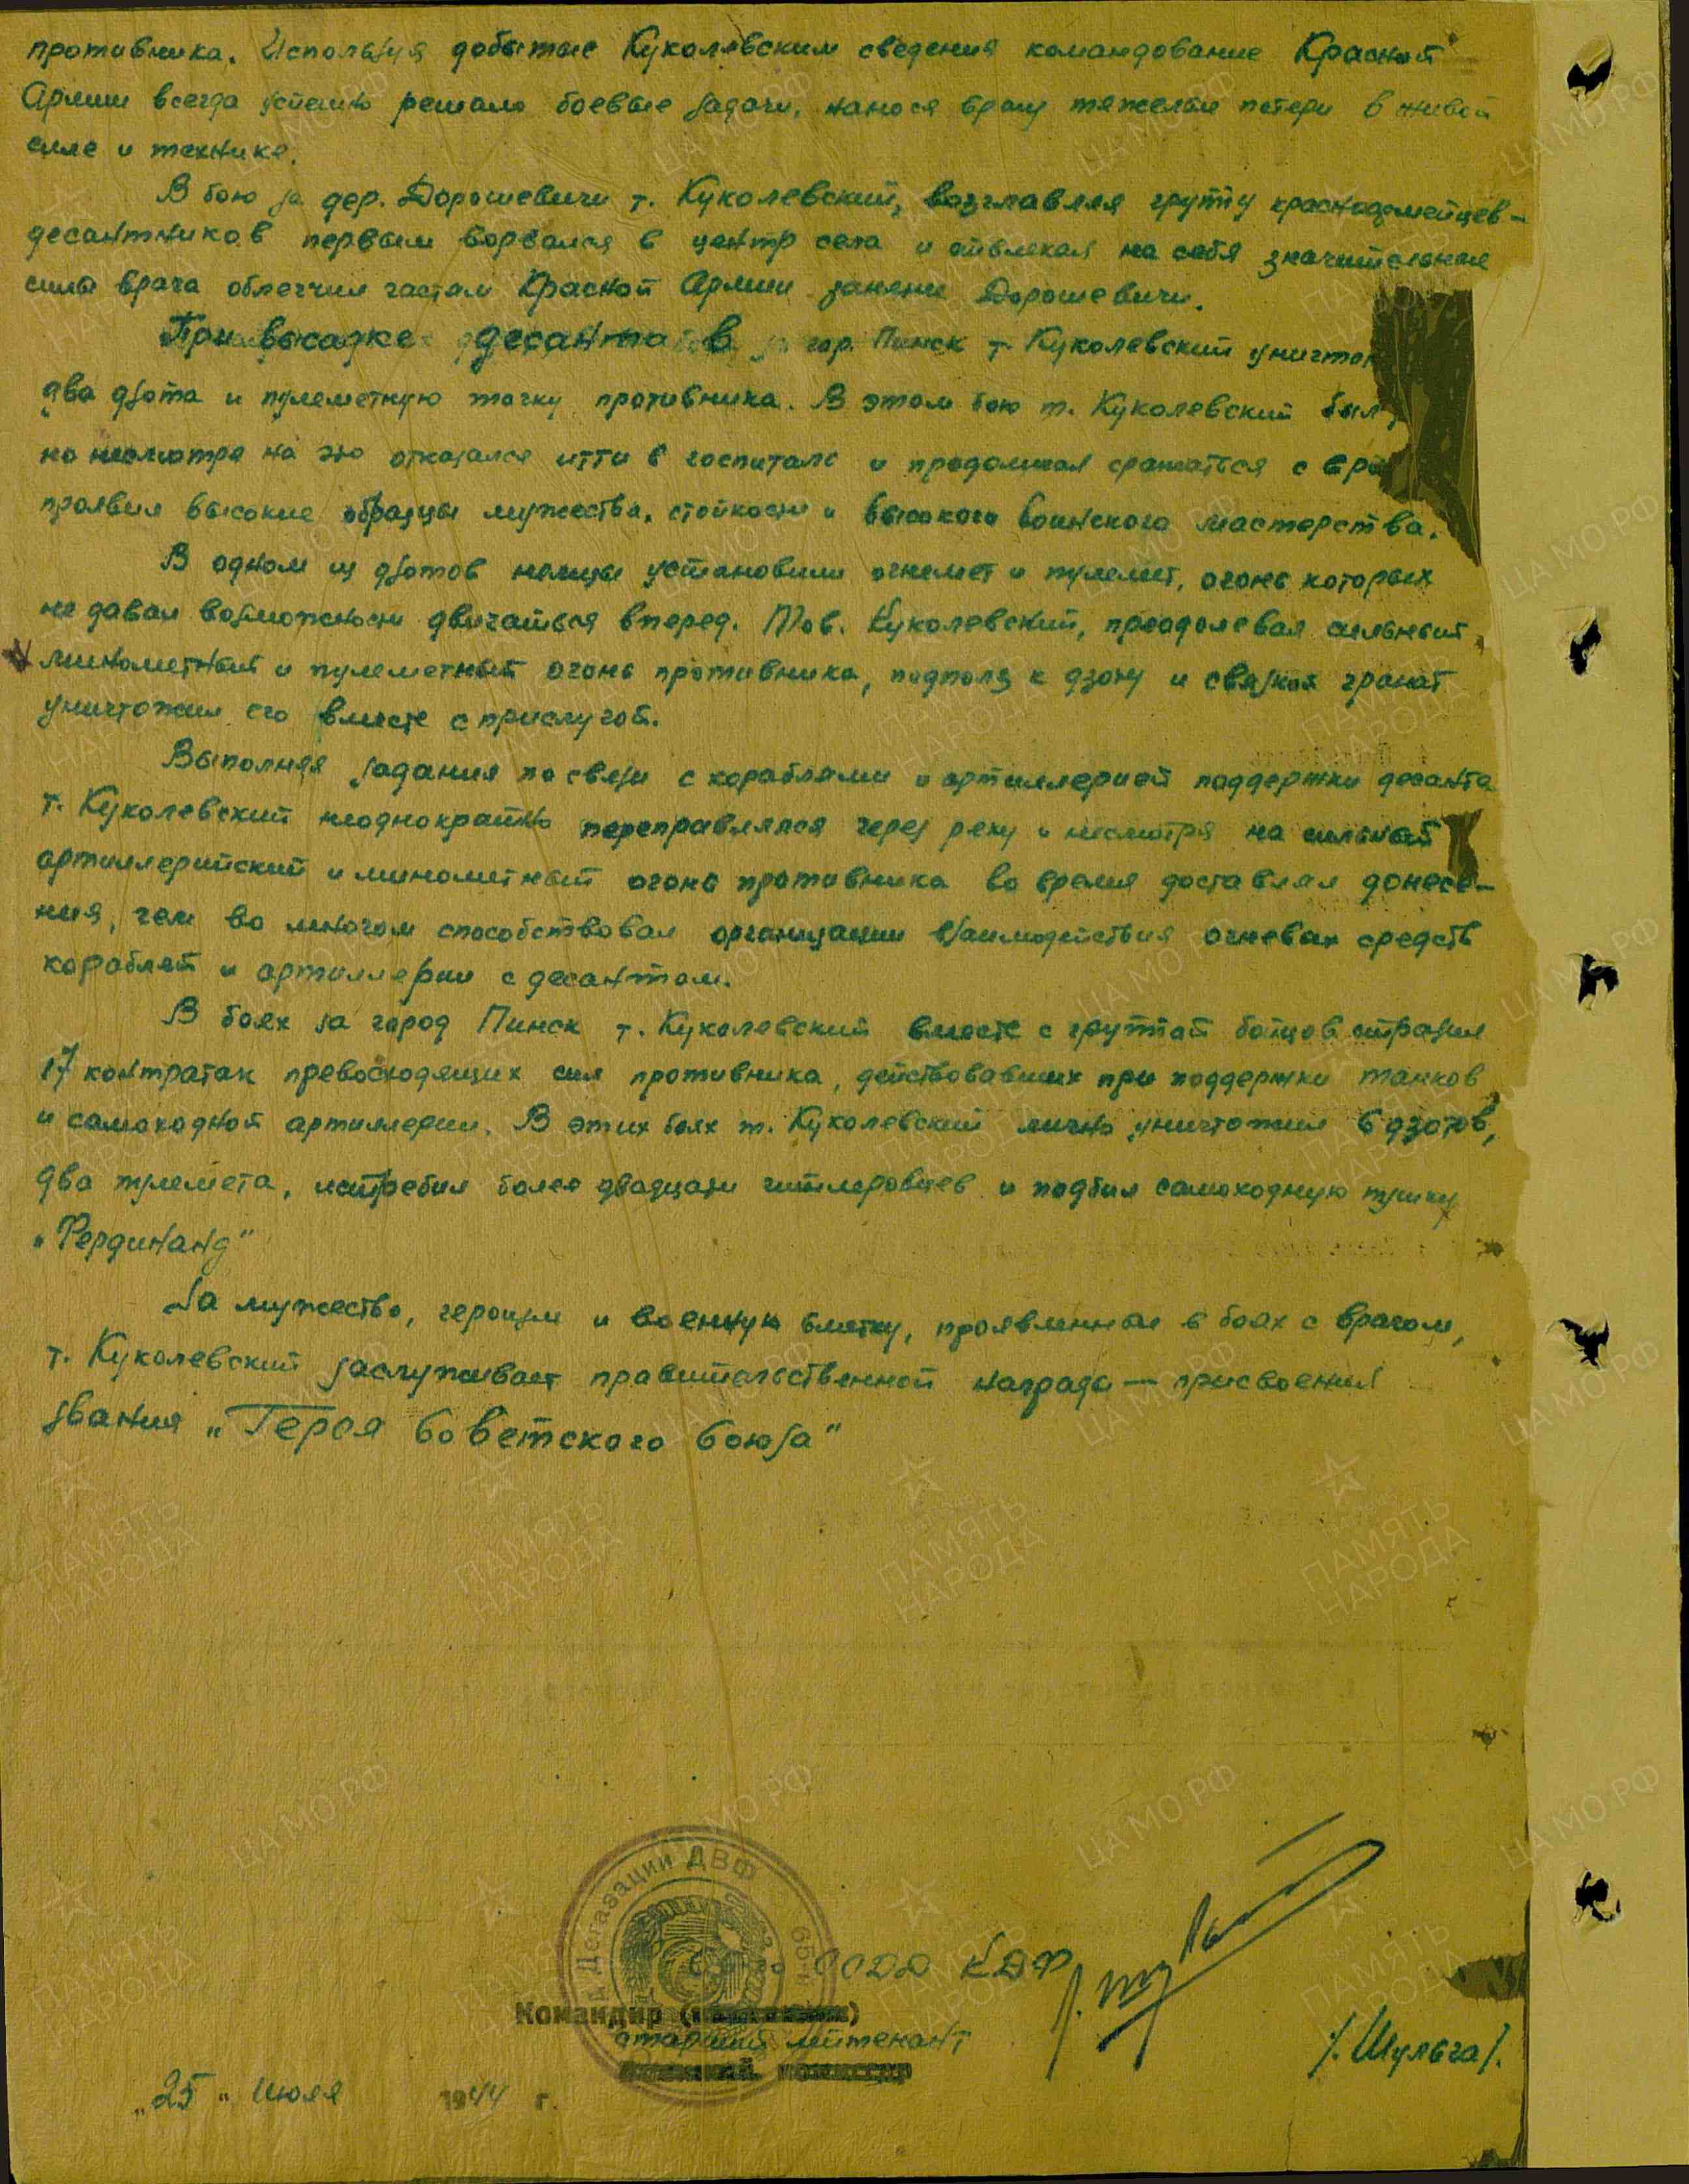 противника. Используя добытые Куколевским сведения командование Красной
Армии всегда успешно решало боевые задачи, нанося врагу тяжелые потери в живой
силе и технике.
В бою за дер. Дорошевичи т. Куколевский, возглавляя группу красноармейцев-
десантников первым ворвался в центр села и отвлекая на себя значительные
силы врага облегчил частям Красной Армии занятие Дорошевичи.
При высадке десанта в гор. Пинск т. Куколевский уничтож
два дзота и пулеметную точку противника. В этом бою т. Куколевский был
но несмотря на это отказался итти в госпиталь и продолжал сражаться с вра
проявил высокие образцы мужества, стойкости и высокого воинского мастерства.
В одном из дзотов немцы установили огнемет и пулемет, огонь которых
не давал возможности двигаться вперед. Тов. Куколевский, преодолевая сильный
минометный и пулеметный огонь противника, подполз к дзоту и связкой гранат
уничтожил его вместе с прислугой.
Выполняя задания по связи с кораблями и артиллерией поддержки десанта
т. Куколевский неоднократно переправлялся через реку и несмотря на сильный
артиллерийский и минометный огонь противника во время доставлял донесе-
ния, чем во многом способствовал организации взаимодействия огневых средств
кораблей и артиллерии с десантом.
В боях за город Пинск т. Куколевский вместе с группой бойцов отразил
17 контратак превосходящих сил противника, действовавших при поддержки танков
и самоходной артиллерии. В этих боях т. Куколевский лично уничтожил 6 дзотов,
два пулемета, истребил более двадцати гитлеровцев и подбил самоходную пушку
„Фердинанд"
За мужество, героизм и военную сметку, проявленные в боях с врагом,
т. Куколевский заслуживает правительственной награды — присвоения
звания „Героя Советского Союза"
Дегазации ДВФ
65-й
КДФ
Командир
старший лейтенант
/.Шульга/.
„25" Июля 1944 г.
ПАМЯТЬ НАРОДА
ЦА МО.РФ